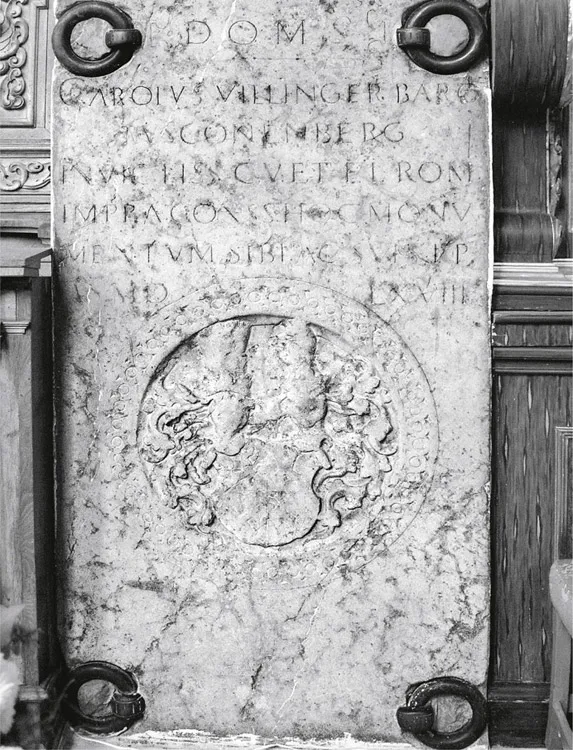 D O M
CAROLVS VILLINGER BARO
IN SCONENBERG
INVICTISS CVET ET ROM
IMPP A CONSS HOC MONV
MENTVM SIBI AC SVIS PP
MD LXVIII